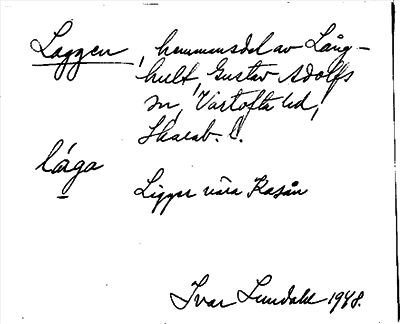 Laggen, hemmansdel av Lång-
hult, Gustav Adolfs
sn, Vartofta hd,
Skarab. l.
låga
Ligger nära Kasån
Ivar Lundahl 1948.